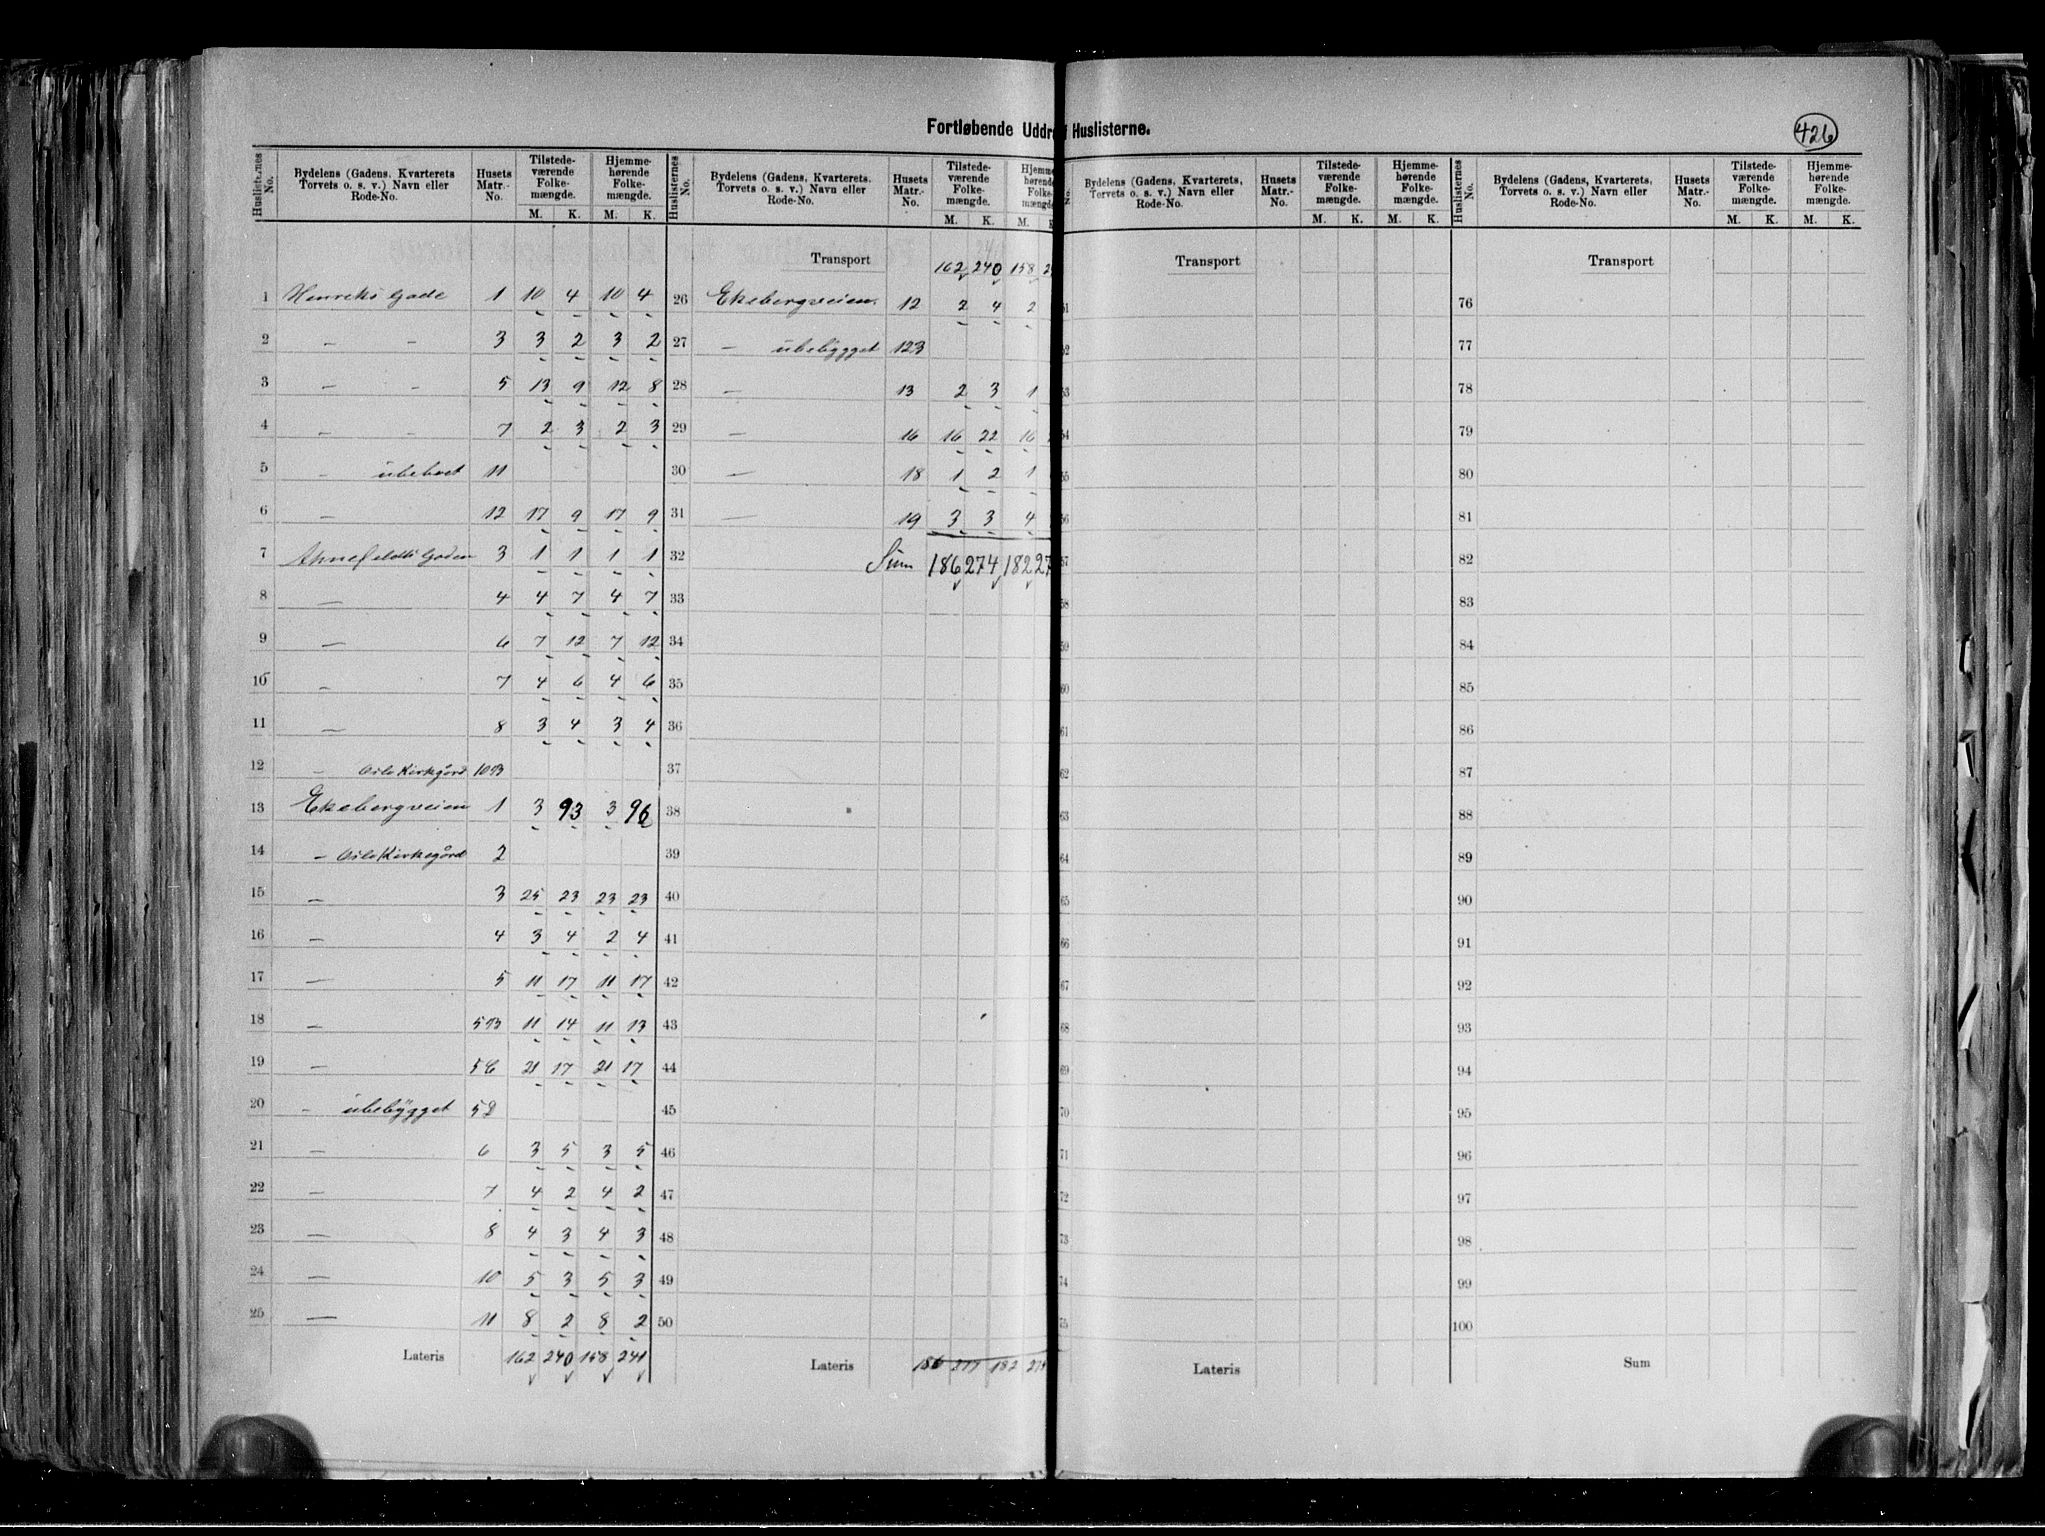 Fortløbende Uddr Huslisterne.
426
Huslisternes No. Bydelens (Gadens, Kvarterets Torvets o. s. v.) Navn eller Rode-No. Husets Matr.-No. Tilstedeværende Folkemængde. M. K. Hjemmehørende Folkemængde. M. K.
1 Henriks Gade 1 10 4 10 4
2 — — 3 3 2 3 2
3 — — 5 13 9 12 8
4 — — 7 2 3 2 3
5 — ubeboet 11
6 — 12 17 9 17 9
7 Ahnefeldts Gaden 3 1 1 1 1
8 — 4 4 7 4 7
9 — 6 7 12 7 12
10 — 7 4 6 4 6
11 — 8 3 4 3 4
12 — Oslo Kirkegård 10B
13 Ekebergveien 1 3 93 3 96
14 — Oslo Kirkegård 2
15 — 3 25 23 23 23
16 — 4 3 4 2 4
17 — 5 11 17 11 17
18 — 5B 11 14 11 13
19 — 5C 21 17 21 17
20 — ubebygget 5D
21 — 6 3 5 3 5
22 — 7 4 2 4 2
23 — 8 4 3 4 3
24 — 10 5 3 5 3
25 — 11 8 2 8 2
Lateris 162 240 158 241
Huslisternes No. Bydelens (Gadens, Kvarterets, Torvets o. s. v.) Navn eller Rode-No. Husets Matr.-No. Tilstedeværende Folkemængde. M. K. Hjemmehørende Folkemængde M.
Transport 162 240 158
26 Ekebergveien 12 2 4 2
27 — ubebygget 123
28 — 13 2 3 1
29 — 16 16 22 16
30 — 18 1 2 1
31 — 19 3 3 4
32 Sum 186 274 182 27
33
34
35
36
37
38
39
40
41
42
43
44
45
46
47
48
49
50
Lateris 186 277 182
Bydelens (Gadens, Kvarterets, Torvets o. s. v.) Navn eller Rode-No. Husets Matr.-No. Tilstedeværende Folkemængde. M. K. Hjemmehørende Folkemængde. M. K.
Transport
51
52
53
54
55
56
57
58
59
60
61
62
63
64
65
66
67
68
69
70
71
72
73
74
75
Lateris
Huslisternes No. Bydelens (Gadens, Kvarterets, Torvets o. s. v.) Navn eller Rode-No. Husets Matr.-No. Tilstedeværende Folkemængde. M. K. Hjemmehørende Folkemængde. M. K.
Transport
76
77
78
79
80
81
82
83
84
85
86
87
88
89
90
91
92
93
94
95
96
97
98
99
100
Sum